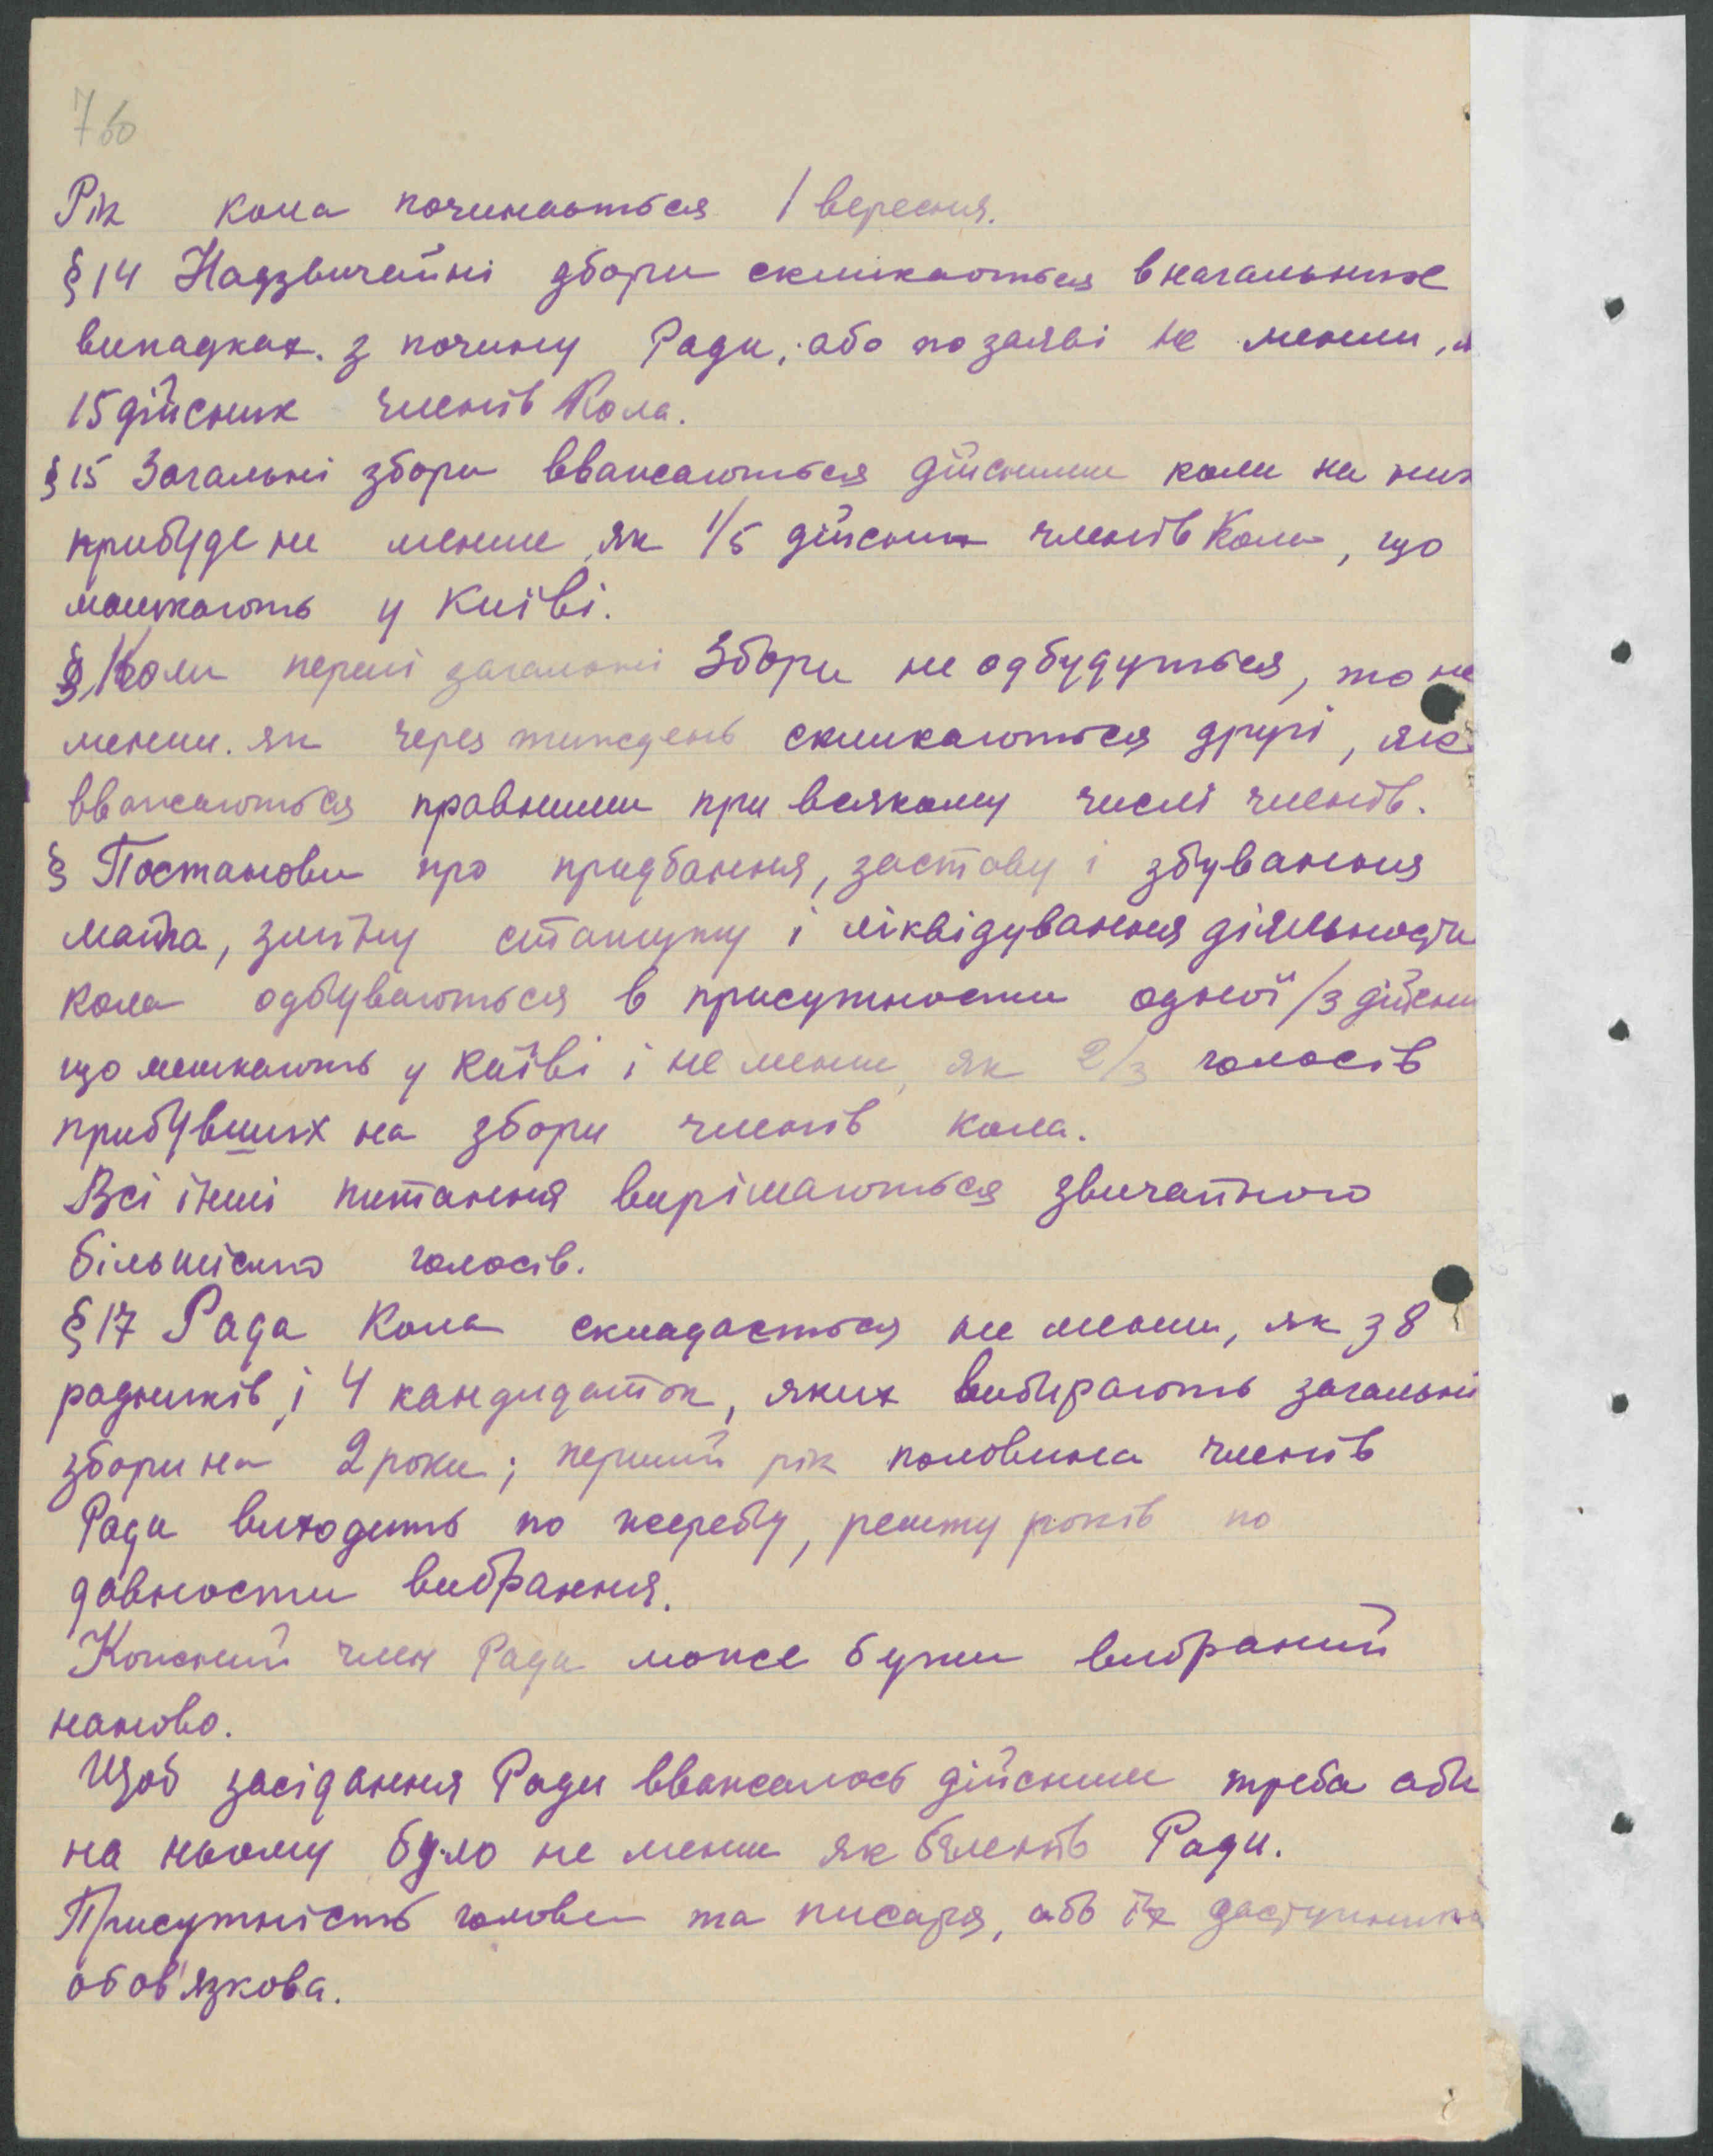 760
Рік кола починається 1 вересня.
§ 14 Надзвичайні збори скликаються в нагальних
випадках. з почину Ради, або по заяві не менш, я
15 дійсних членів Кола.
§ 15 Загальні збори вважаються дійсними коли на них
прибуде не менше як 1/5 дійсних членів Кола, що
мешкають у Київі.
§ Коли перші загальні Збори не одбудуться, то не
менш. як через тиждень скликаються другі, які
вважаються правними при всякому числі членів.
§ Постанови про придбання, заставу і збування
майна, зміну статуту і ліквідування діяльности
кола одбуваються в присутности одної /3 дійсни
що мешкають у Київі і не менш, як 2/3 голосів
прибувших на збори членів кола.
Всі інші питання вирішаються звичайною
більшістю голосів.
§ 17 Рада Кола складається не менш, як з 8
радників і 4 кандидаток, яких вибирають загальні
збори на 2 роки; перший рік половина членів
Ради виходить по жеребу, решту років по
давности вибрання.
Кожний член Ради може бути вибраний
наново.
Щоб засідання Ради вважалось дійсним треба аби
на ньому було не менш як членів Ради.
Присутність голови та писаря, або їх заступника
обов'язкова.